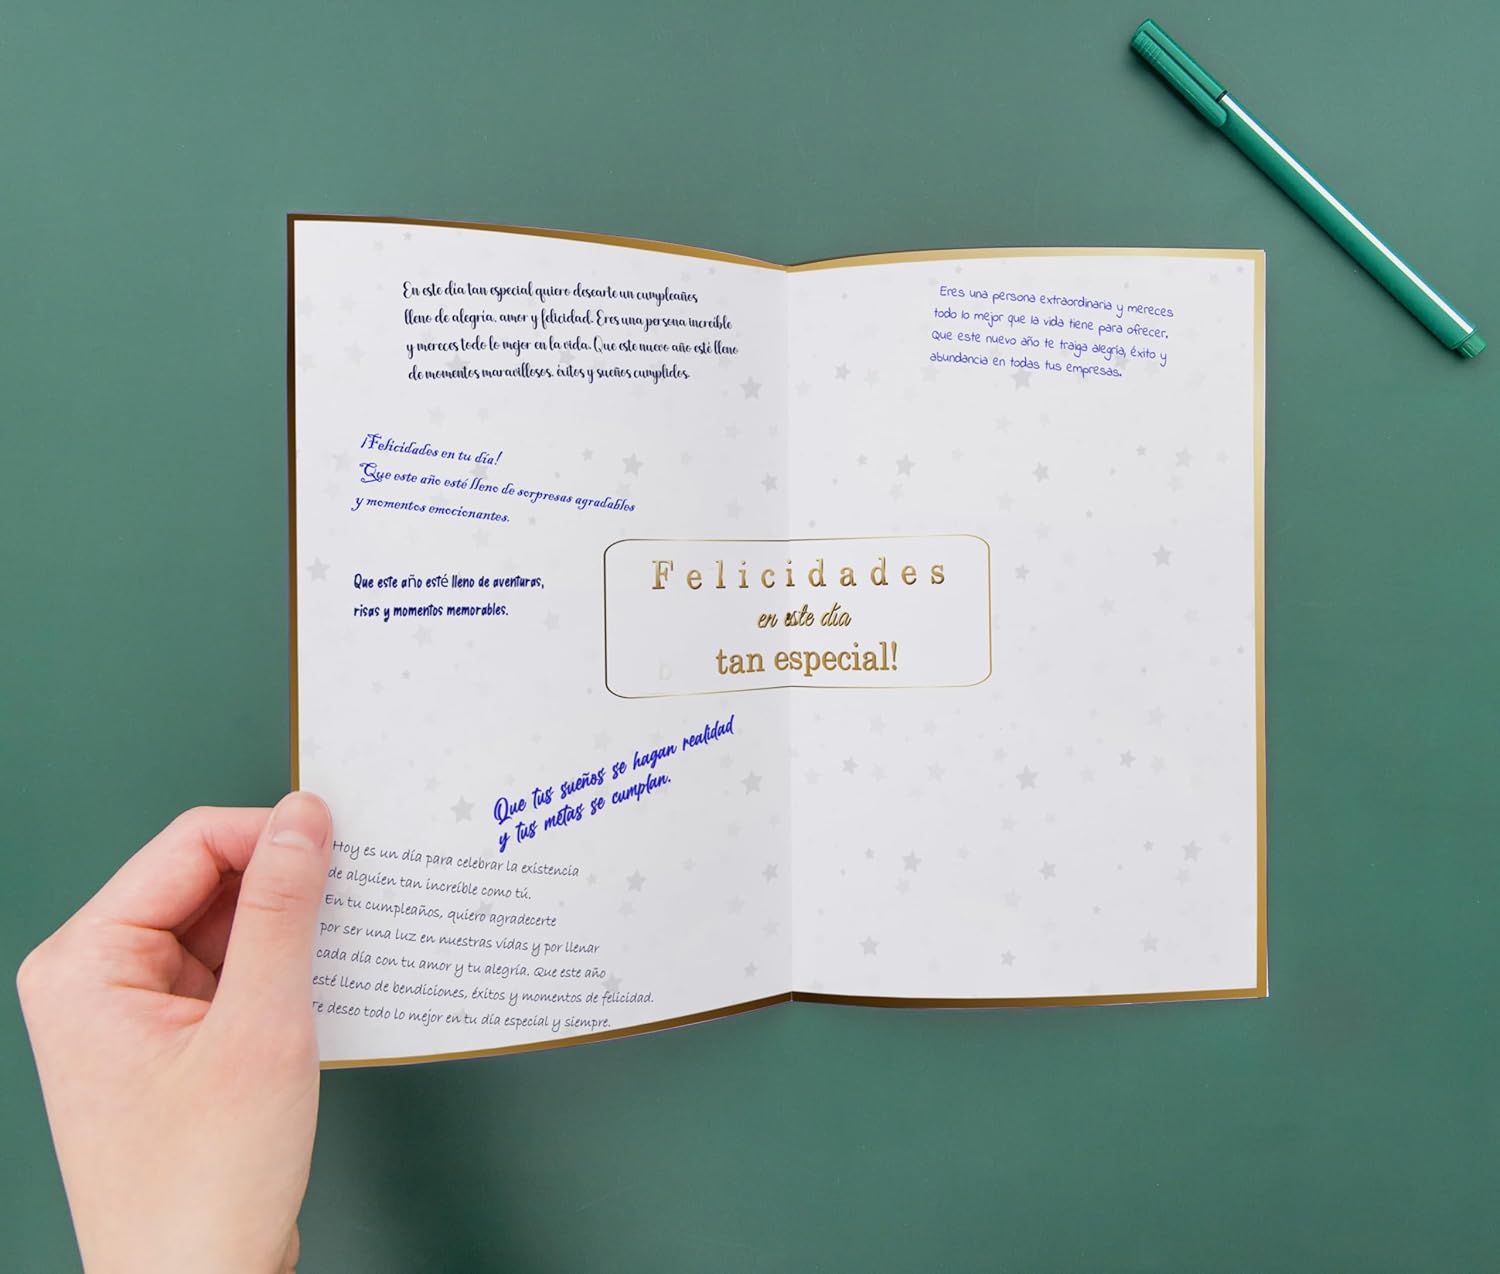 En este día tan especial quiero desearte un cumpleaños
lleno de alegría, amor y felicidad. Eres una persona increíble
y mereces todo lo mejor en la vida. Que este nuevo año esté lleno
de momentos maravillosos, éxitos y sueños cumplidos.
¡Felicidades en tu día!
Que este año esté lleno de sorpresas agradables
y momentos emocionantes.
Que este año esté lleno de aventuras,
risas y momentos memorables.
Que tus sueños se hagan realidad
y tus metas se cumplan.
Hoy es un día para celebrar la existencia
de alguien tan increíble como tú.
En tu cumpleaños, quiero agradecerte
por ser una luz en nuestras vidas y por llenar
cada día con tu amor y tu alegría. Que este año
esté lleno de bendiciones, éxitos y momentos de felicidad.
Te deseo todo lo mejor en tu día especial y siempre.
Felicidades
en este día
tan especial!
Eres una persona extraordinaria y mereces
todo lo mejor que la vida tiene para ofrecer.
Que este nuevo año te traiga alegría, éxito y
abundancia en todas tus empresas.